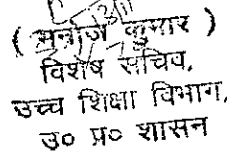 ( मनोज कुमार )
विशेष सचिव,
उच्च शिक्षा विभाग,
उ० प्र० शासन